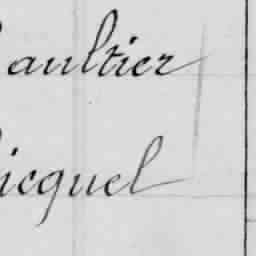 aultier
icquel